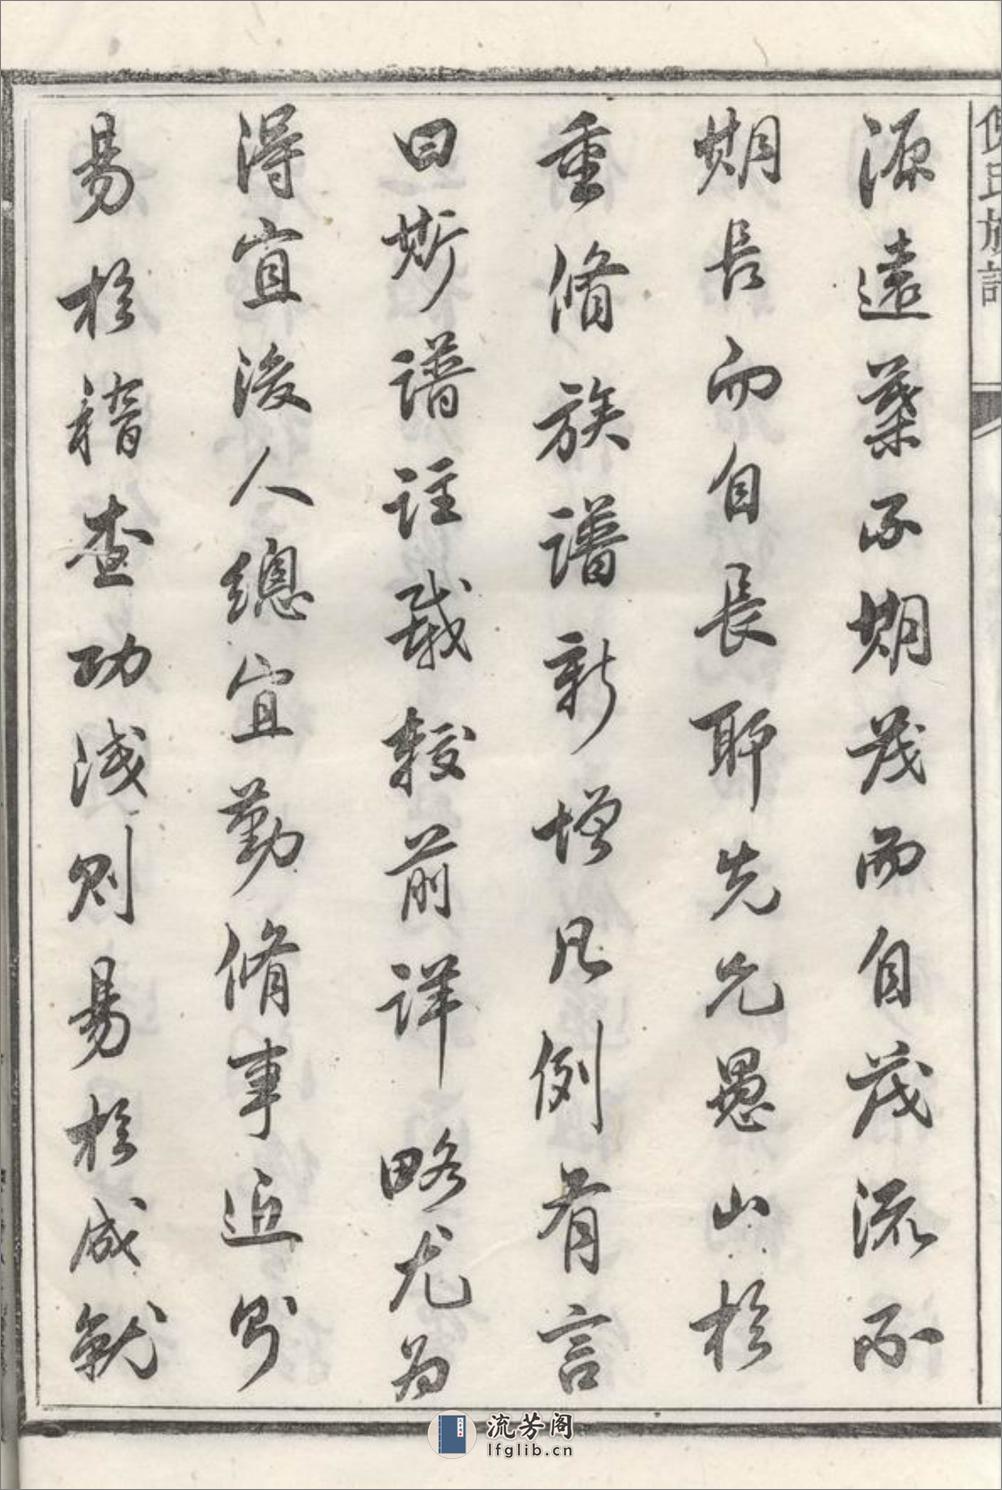 源遠葉不期茂而自茂流不
期長而自長耶先兄愚山於
重脩族譜新增凡例有言
曰斯譜註載較前詳略尤為
得宜後人總宜勤脩事近則
易於稽查功淺則易於成就
氏族譜
流芳阁
lfglib.cn